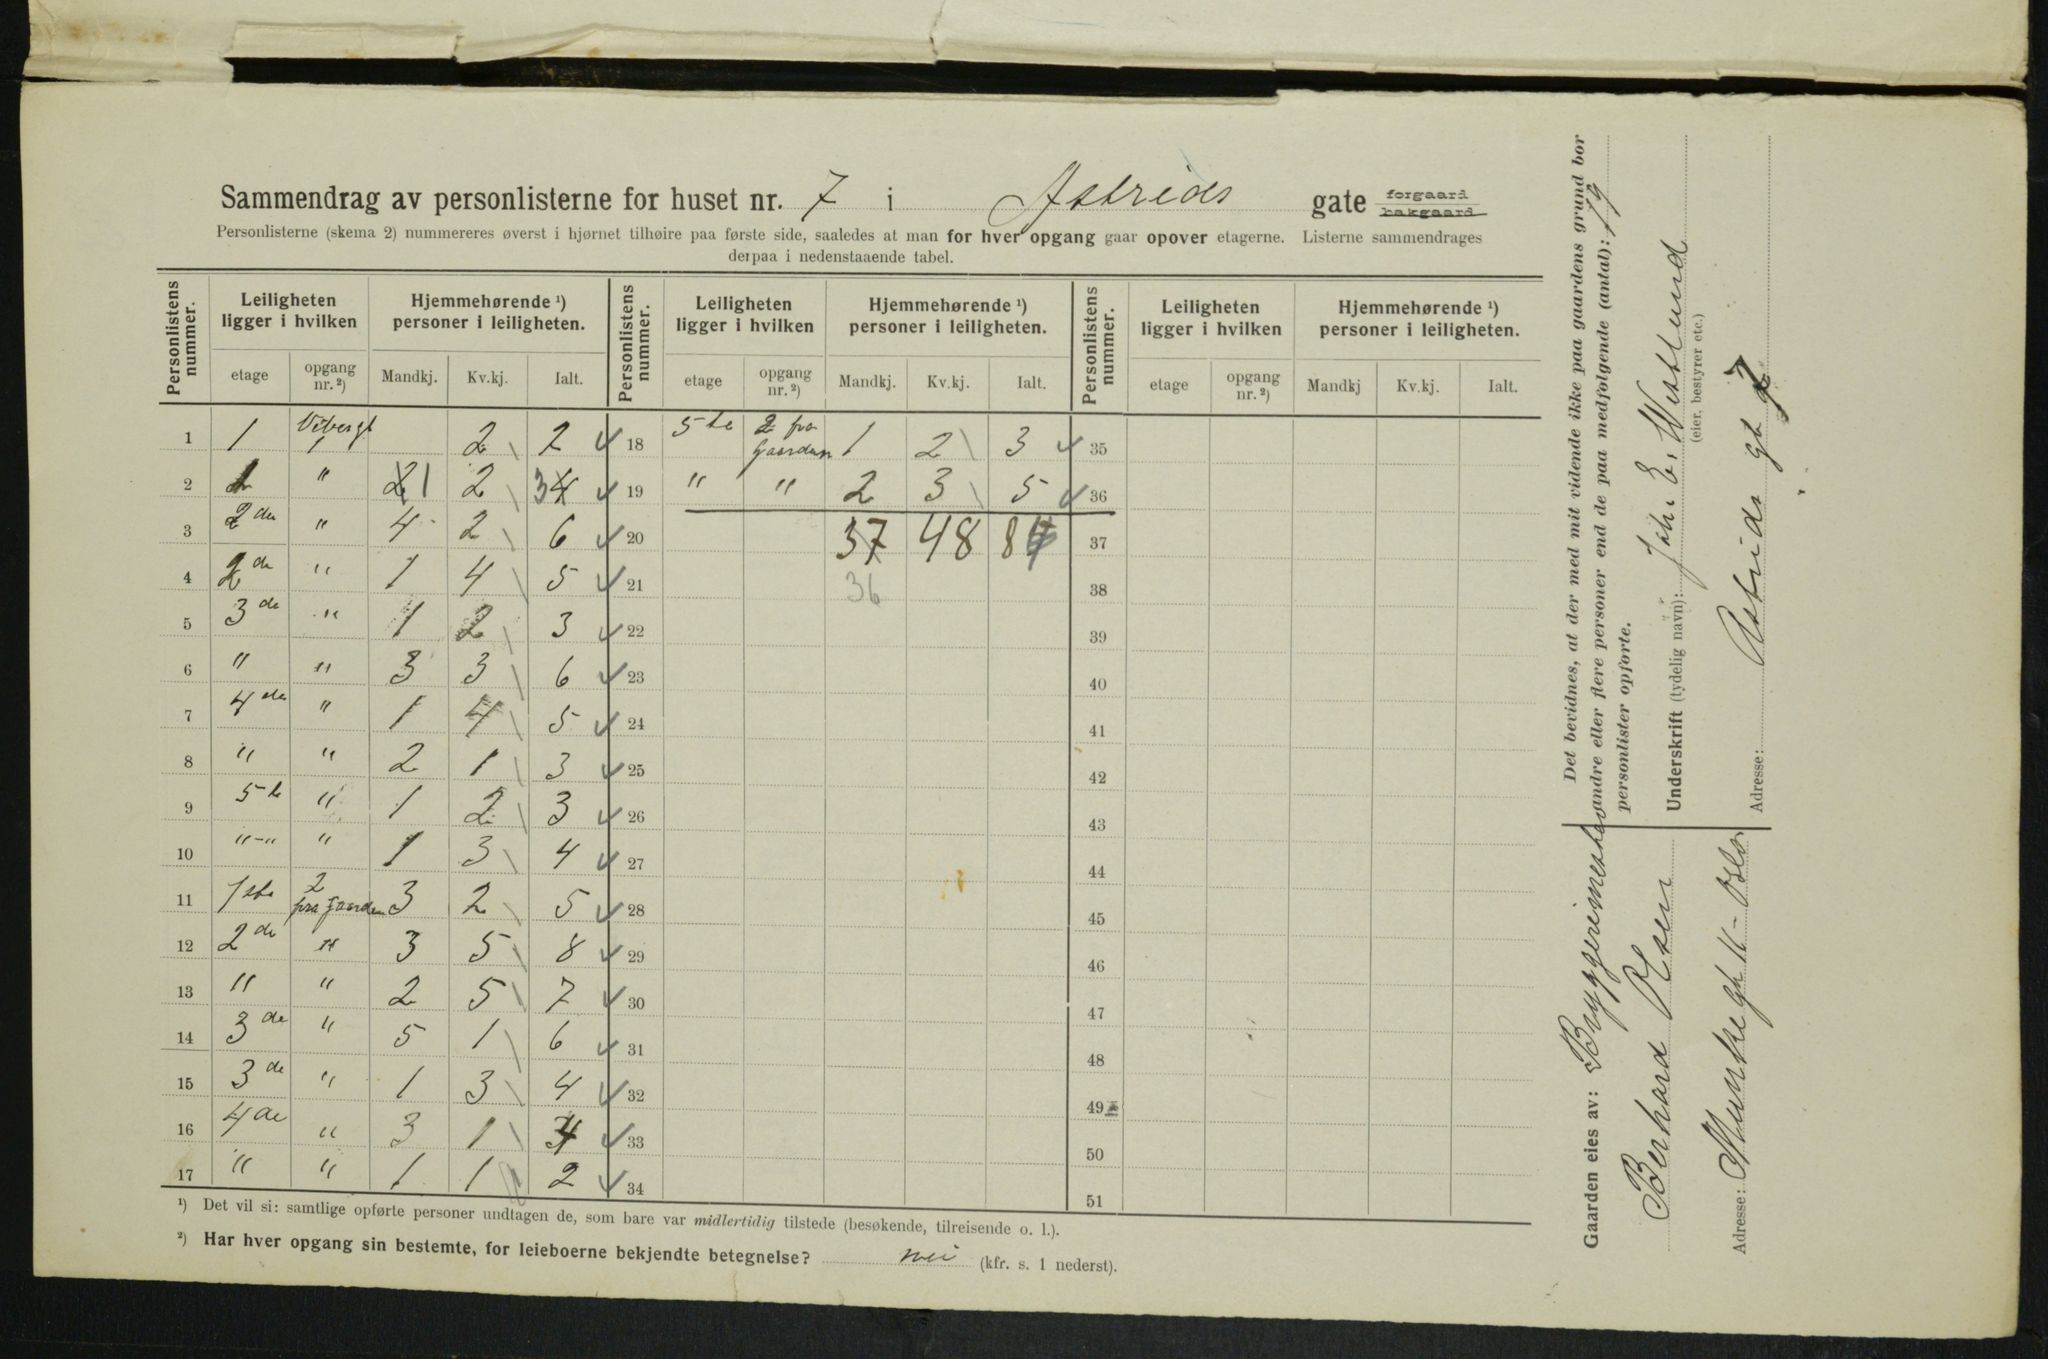 Sammendrag av personlisterne for huset nr. 7 i Astrids gate forgaard bakgaard
Personlisterne (skema 2) nummereres øverst i hjørnet tilhøire paa første side, saaledes at man for hver opgang gaar opover etagerne. Listerne sammendrages
derpaa i nedenstaaende tabel.
Personlistens nummer. Leiligheten ligger i hvilken Hjemmehørende ¹) personer i leiligheten. Personlistens nummer. Leiligheten ligger i hvilken Hjemmehørende ¹) personer i leiligheten. Personlistens nummer. Leiligheten ligger i hvilken Hjemmehørende ¹) personer i leiligheten.
etage opgang nr. ²) Mandkj. Kv.kj. Ialt. etage opgang nr. ²) Mandkj. Kv.kj. Ialt. etage opgang nr. ²) Mandkj Kv.kj. Ialt.
1 1 Vibergt 1 2 2 18 5te 2 fra Gaarden 1 2 3 35
2 1 " 2 1 2 3 4 19 " " 2 3 5 36
3 2den " 4 2 6 20 37 48 84 37
4 2de " 1 4 5 21 36 38
5 3de " 1 2 3 22 39
6 " " 3 3 6 23 40
7 4de " 1 4 5 24 41
8 " " 2 1 3 25 42
9 5te " 1 2 3 26 43
10 "-" " 1 3 4 27 44
11 1ste 2 fra Gaarden 3 2 5 28 45
12 2de " 3 5 8 29 46
13 " " 2 5 7 30 47
14 3de " 5 1 6 31 48
15 3de " 1 3 4 32 49
16 4de " 3 1 4 33 50
17 " " 1 1 2 34 51
¹) Det vil si: samtlige opførte personer undtagen de, som bare var midlertidig tilstede (besøkende, tilreisende o. l.).
²) Har hver opgang sin bestemte, for leieboerne bekjendte betegnelse? nei (kfr. s. 1 nederst).
Det bevidnes, at der med mit vidende ikke paa gaardens grund bor
andre eller flere personer end de paa medfølgende (antal): 19
personlister opførte.
Underskrift (tydelig navn): Joh. E. Westlund
(eier, bestyrer etc.)
Adresse: Astrids gt 7
Gaarden eies av: Bryggerimester
Berhard Olsen
Adresse: Munkegt 11 - Oslo